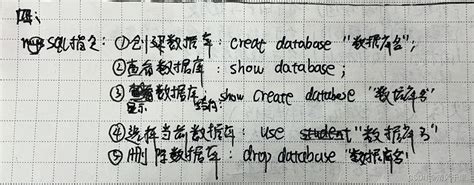 解：
mySQL指令：①创建数据库：creat database "数据库名"；
②查看数据库：show database；
③ 数据库：show create database "数据库名"
显示 结构
④选择当前数据库：use "数据库名"
⑤删除数据库：drop database "数据库名"